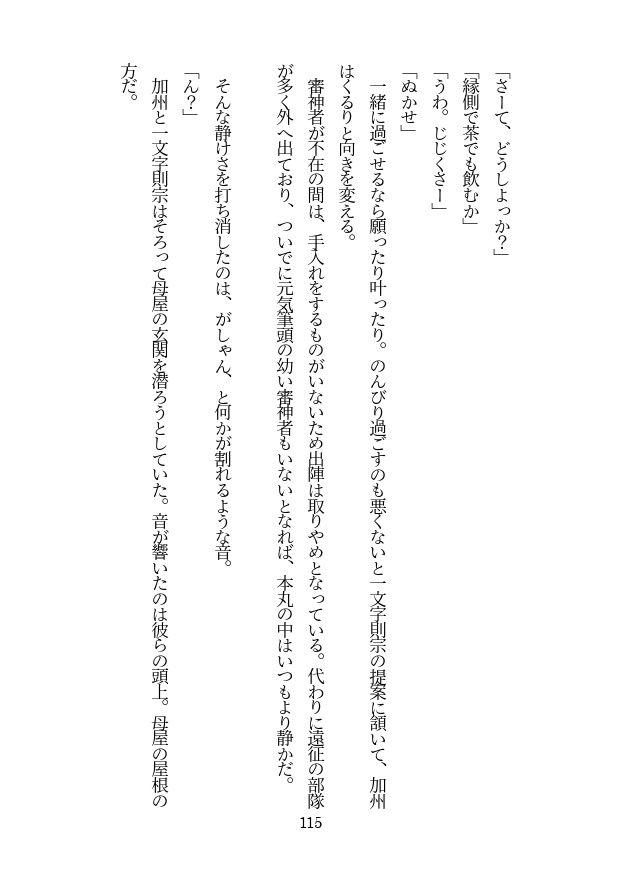 「さーて、どうしよっか？」
「縁側で茶でも飲むか」
「うわ。じじくさー」
「ぬかせ」
　一緒に過ごせるなら願ったり叶ったり。のんびり過ごすのも悪くないと一文字則宗の提案に頷いて、加州
はくるりと向きを変える。
　審神者が不在の間は、手入れをするものがいないため出陣は取りやめとなっている。代わりに遠征の部隊
が多く外へ出ており、ついでに元気筆頭の幼い審神者もいないとなれば、本丸の中はいつもより静かだ。
　そんな静けさを打ち消したのは、がしゃん、と何かが割れるような音。
「ん？」
　加州と一文字則宗はそろって母屋の玄関を潜ろうとしていた。音が響いたのは彼らの頭上。母屋の屋根の
方だ。
115